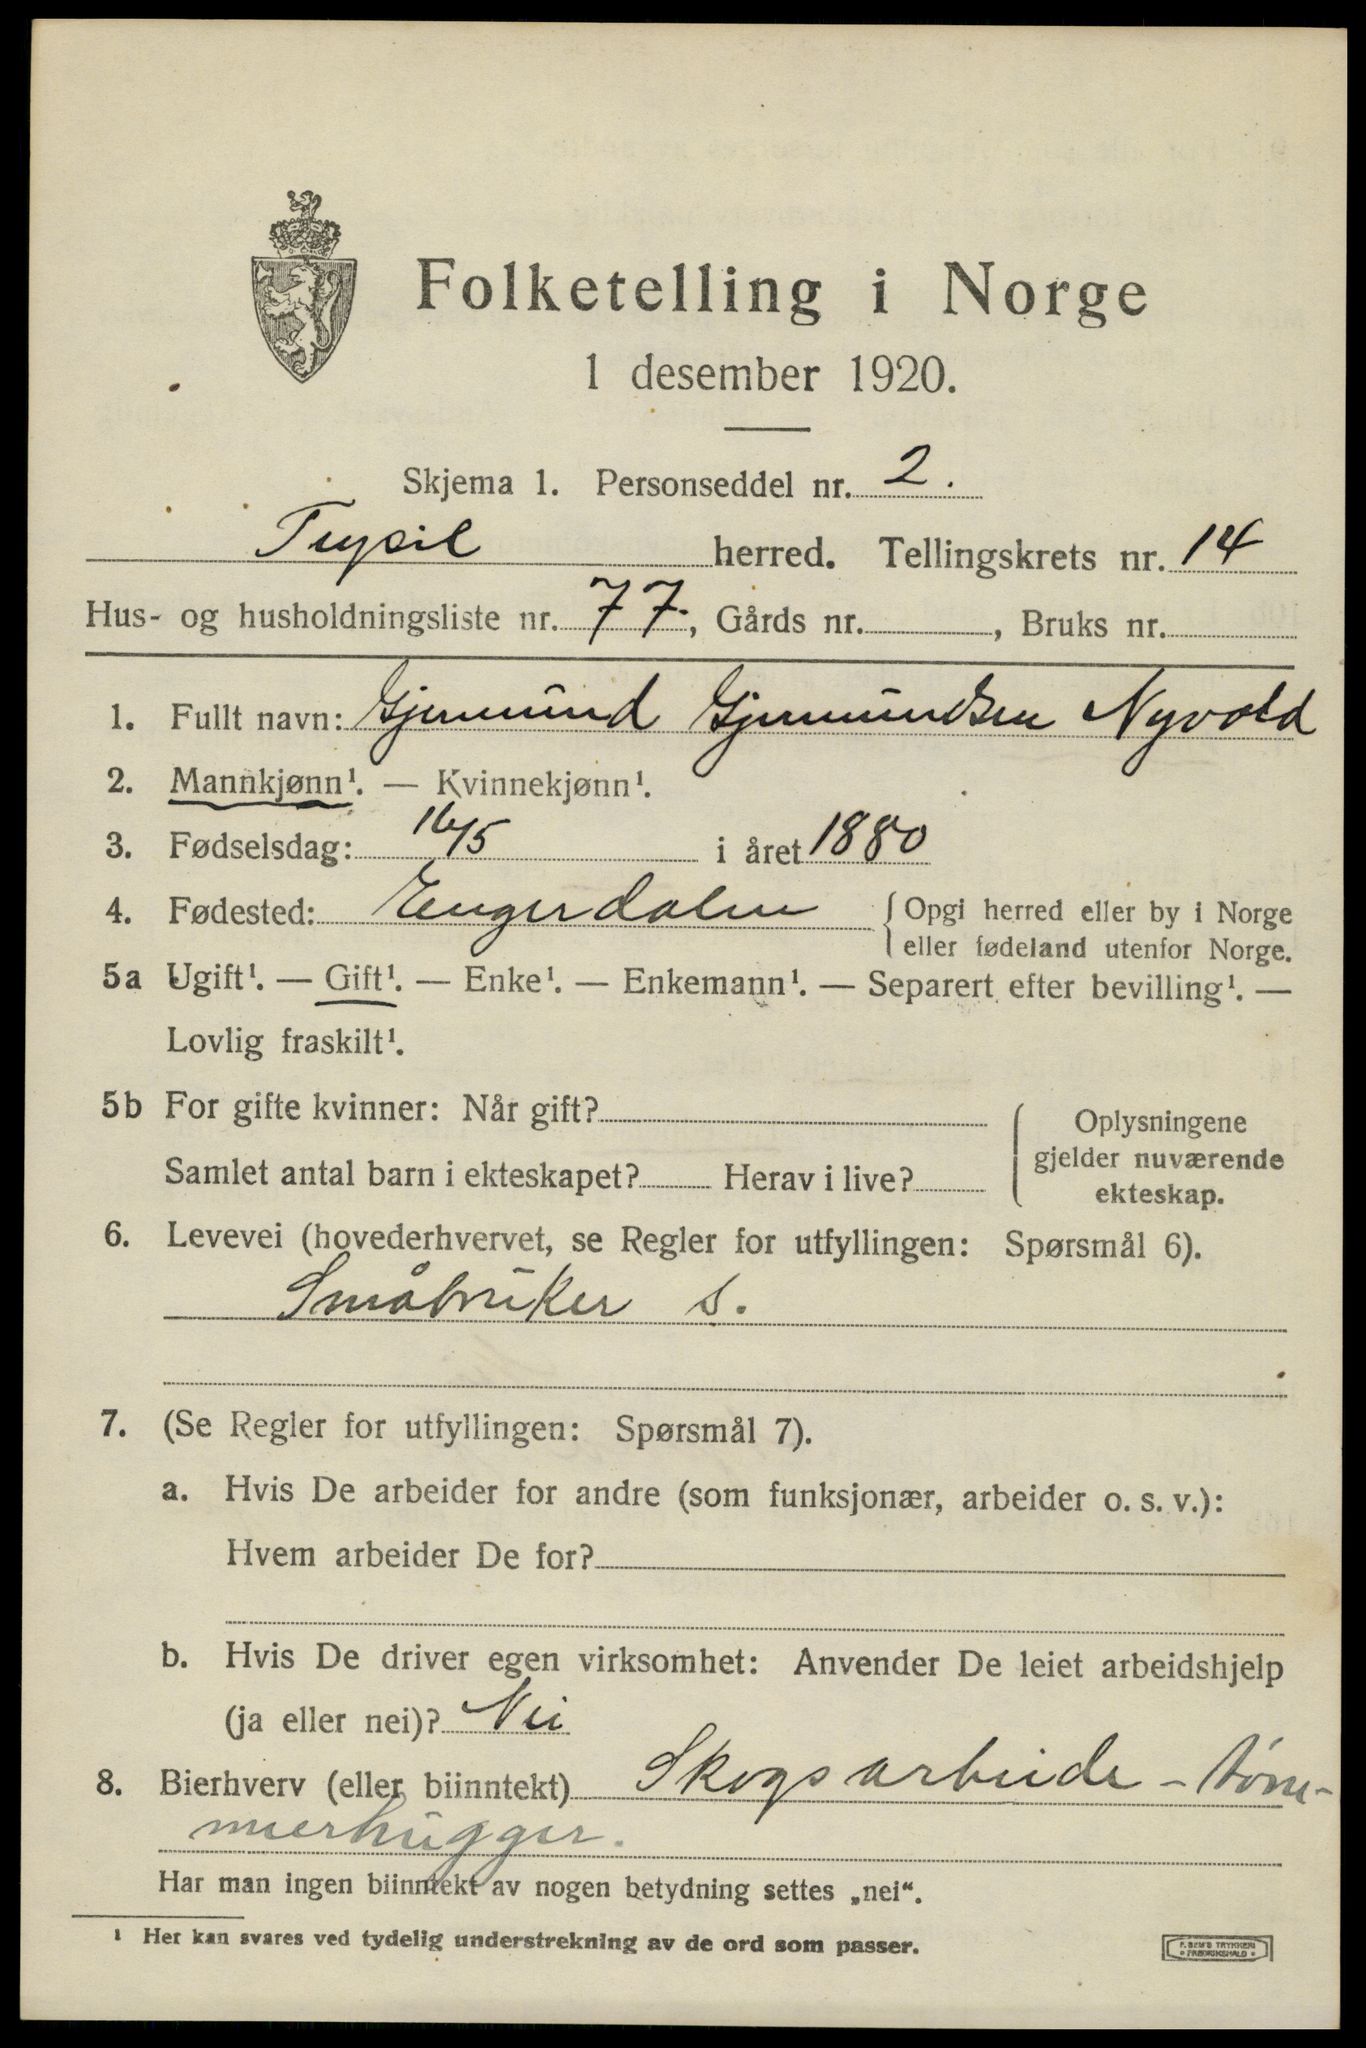 Folketelling i Norge
1 desember 1920.
Skjema 1. Personseddel nr. 2.
Trysil herred. Tellingskrets nr. 14
Hus- og husholdningsliste nr. 77, Gårds nr. , Bruks nr.
1. Fullt navn: Gjermund Gjermundsen Nyvold
2. Mannkjønn¹. — Kvinnekjønn¹.
3. Fødselsdag: 16/5 i året 1880
4. Fødested: Engerdalen { Opgi herred eller by i Norge
eller fødeland utenfor Norge.
5a Ugift¹. — Gift¹. — Enke¹. — Enkemann¹. — Separert efter bevilling¹. —
Lovlig fraskilt¹.
5b For gifte kvinner: Når gift?
Samlet antal barn i ekteskapet? Herav i live?
Oplysningene
gjelder nuværende
ekteskap.
6. Levevei (hovederhvervet, se Regler for utfyllingen: Spørsmål 6).
Småbruker s.
7. (Se Regler for utfyllingen: Spørsmål 7).
a. Hvis De arbeider for andre (som funksjonær, arbeider o. s. v.):
Hvem arbeider De for?
b. Hvis De driver egen virksomhet: Anvender De leiet arbeidshjelp
(ja eller nei)? Nei
8. Bierhverv (eller biinntekt) Skogsarbeide - tøm-
merhugger.
Har man ingen biinntekt av nogen betydning settes „nei“.
¹ Her kan svares ved tydelig understrekning av de ord som passer.
F. BEM'S TRYKKERI
• FREDRIKSHALD •